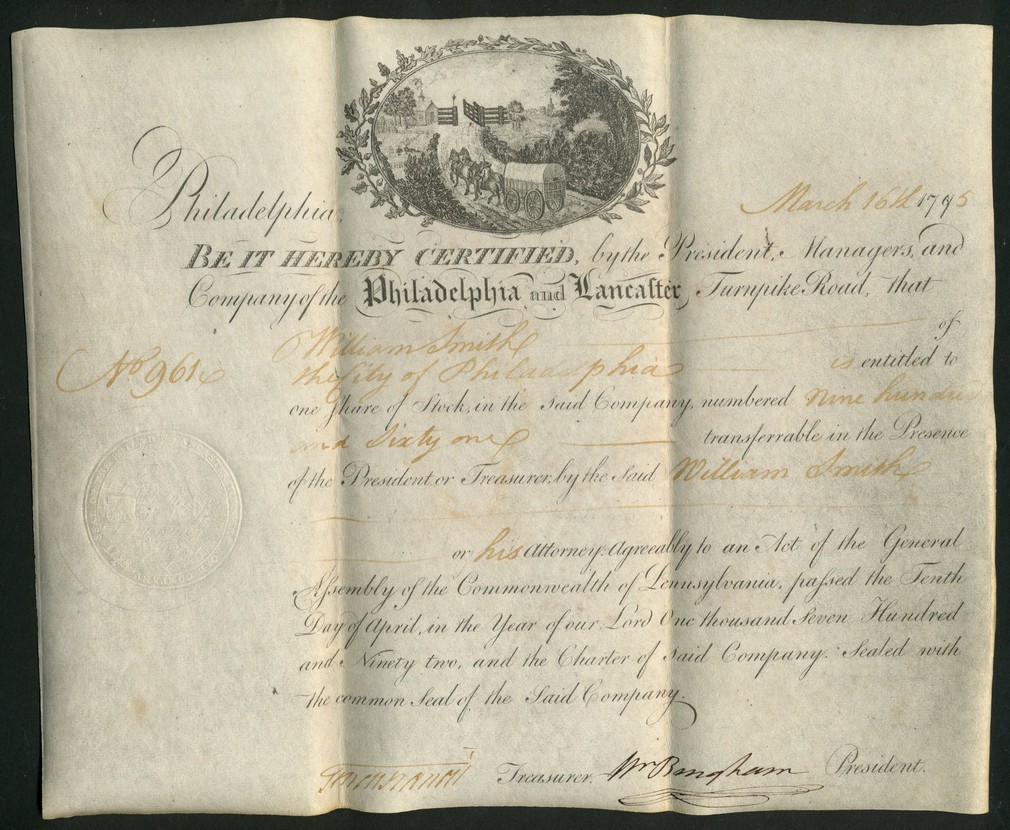 Philadelphia, March 16th 1795
BE IT HEREBY CERTIFIED, by the President, Managers, and
Company of the Philadelphia and Lancaster Turnpike Road, that
William Smith of
No 961
the City of Philadelphia is entitled to
one Share of Stock, in the said Company, numbered Nine hundred
and Sixty one transferrable in the Presence
of the President or Treasurer, by the Said William Smith
or his Attorney. Agreeably to an Act of the General
Assembly of the Commonwealth of Pennsylvania, passed the Tenth
Day of April, in the Year of our Lord One thousand Seven Hundred
and Ninety two, and the Charter of said Company. Sealed with
the common Seal of the Said Company.
Treasurer. Wm Bingham President.